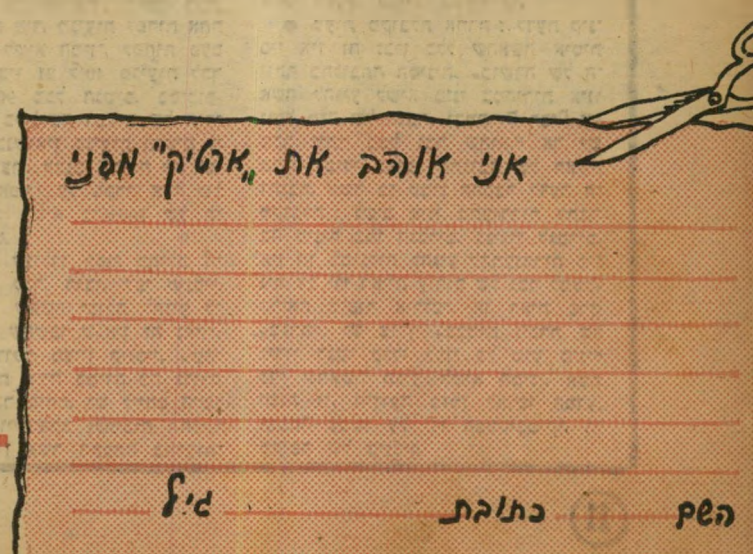 אני אוהב את „ארטיק" מפני
השם כתובת גיל